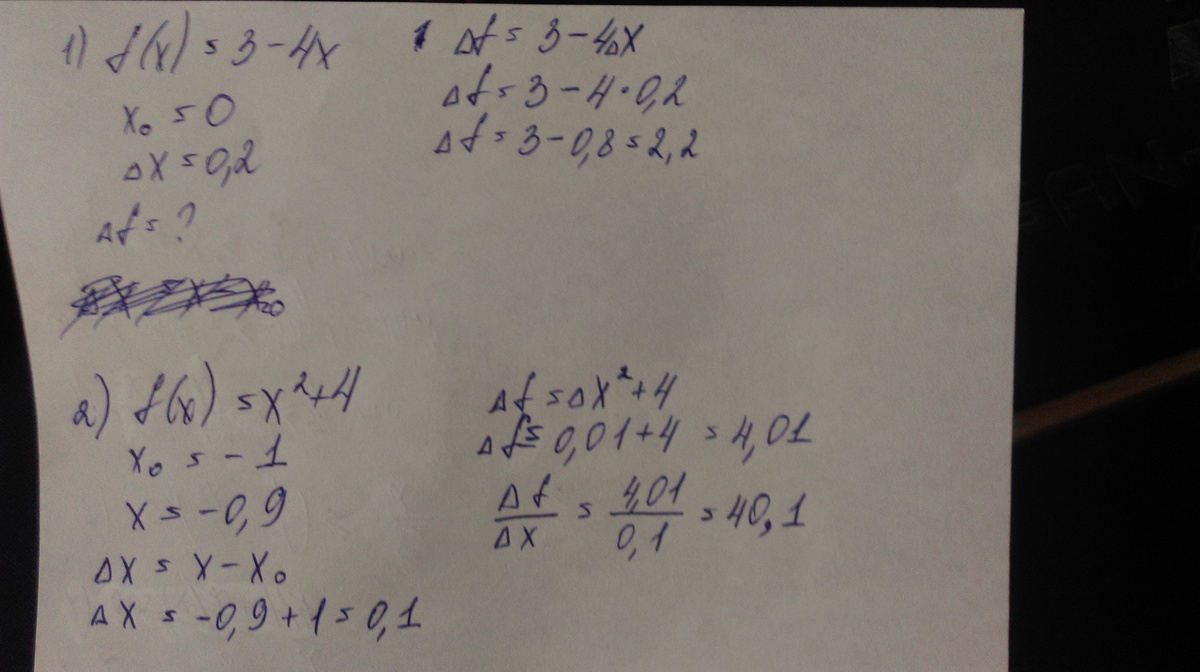 1) f(x) = 3 - 4x
x₀ = 0
Δx = 0,2
Δf = ?
Δf = 3 - 4Δx
Δf = 3 - 4·0,2
Δf = 3 - 0,8 = 2,2
2) f(x) = x² + 4
x₀ = -1
x = -0,9
Δx = x - x₀
Δx = -0,9 + 1 = 0,1
Δf = Δx² + 4
Δf = 0,01 + 4 = 4,01
Δf/Δx = 4,01/0,1 = 40,1